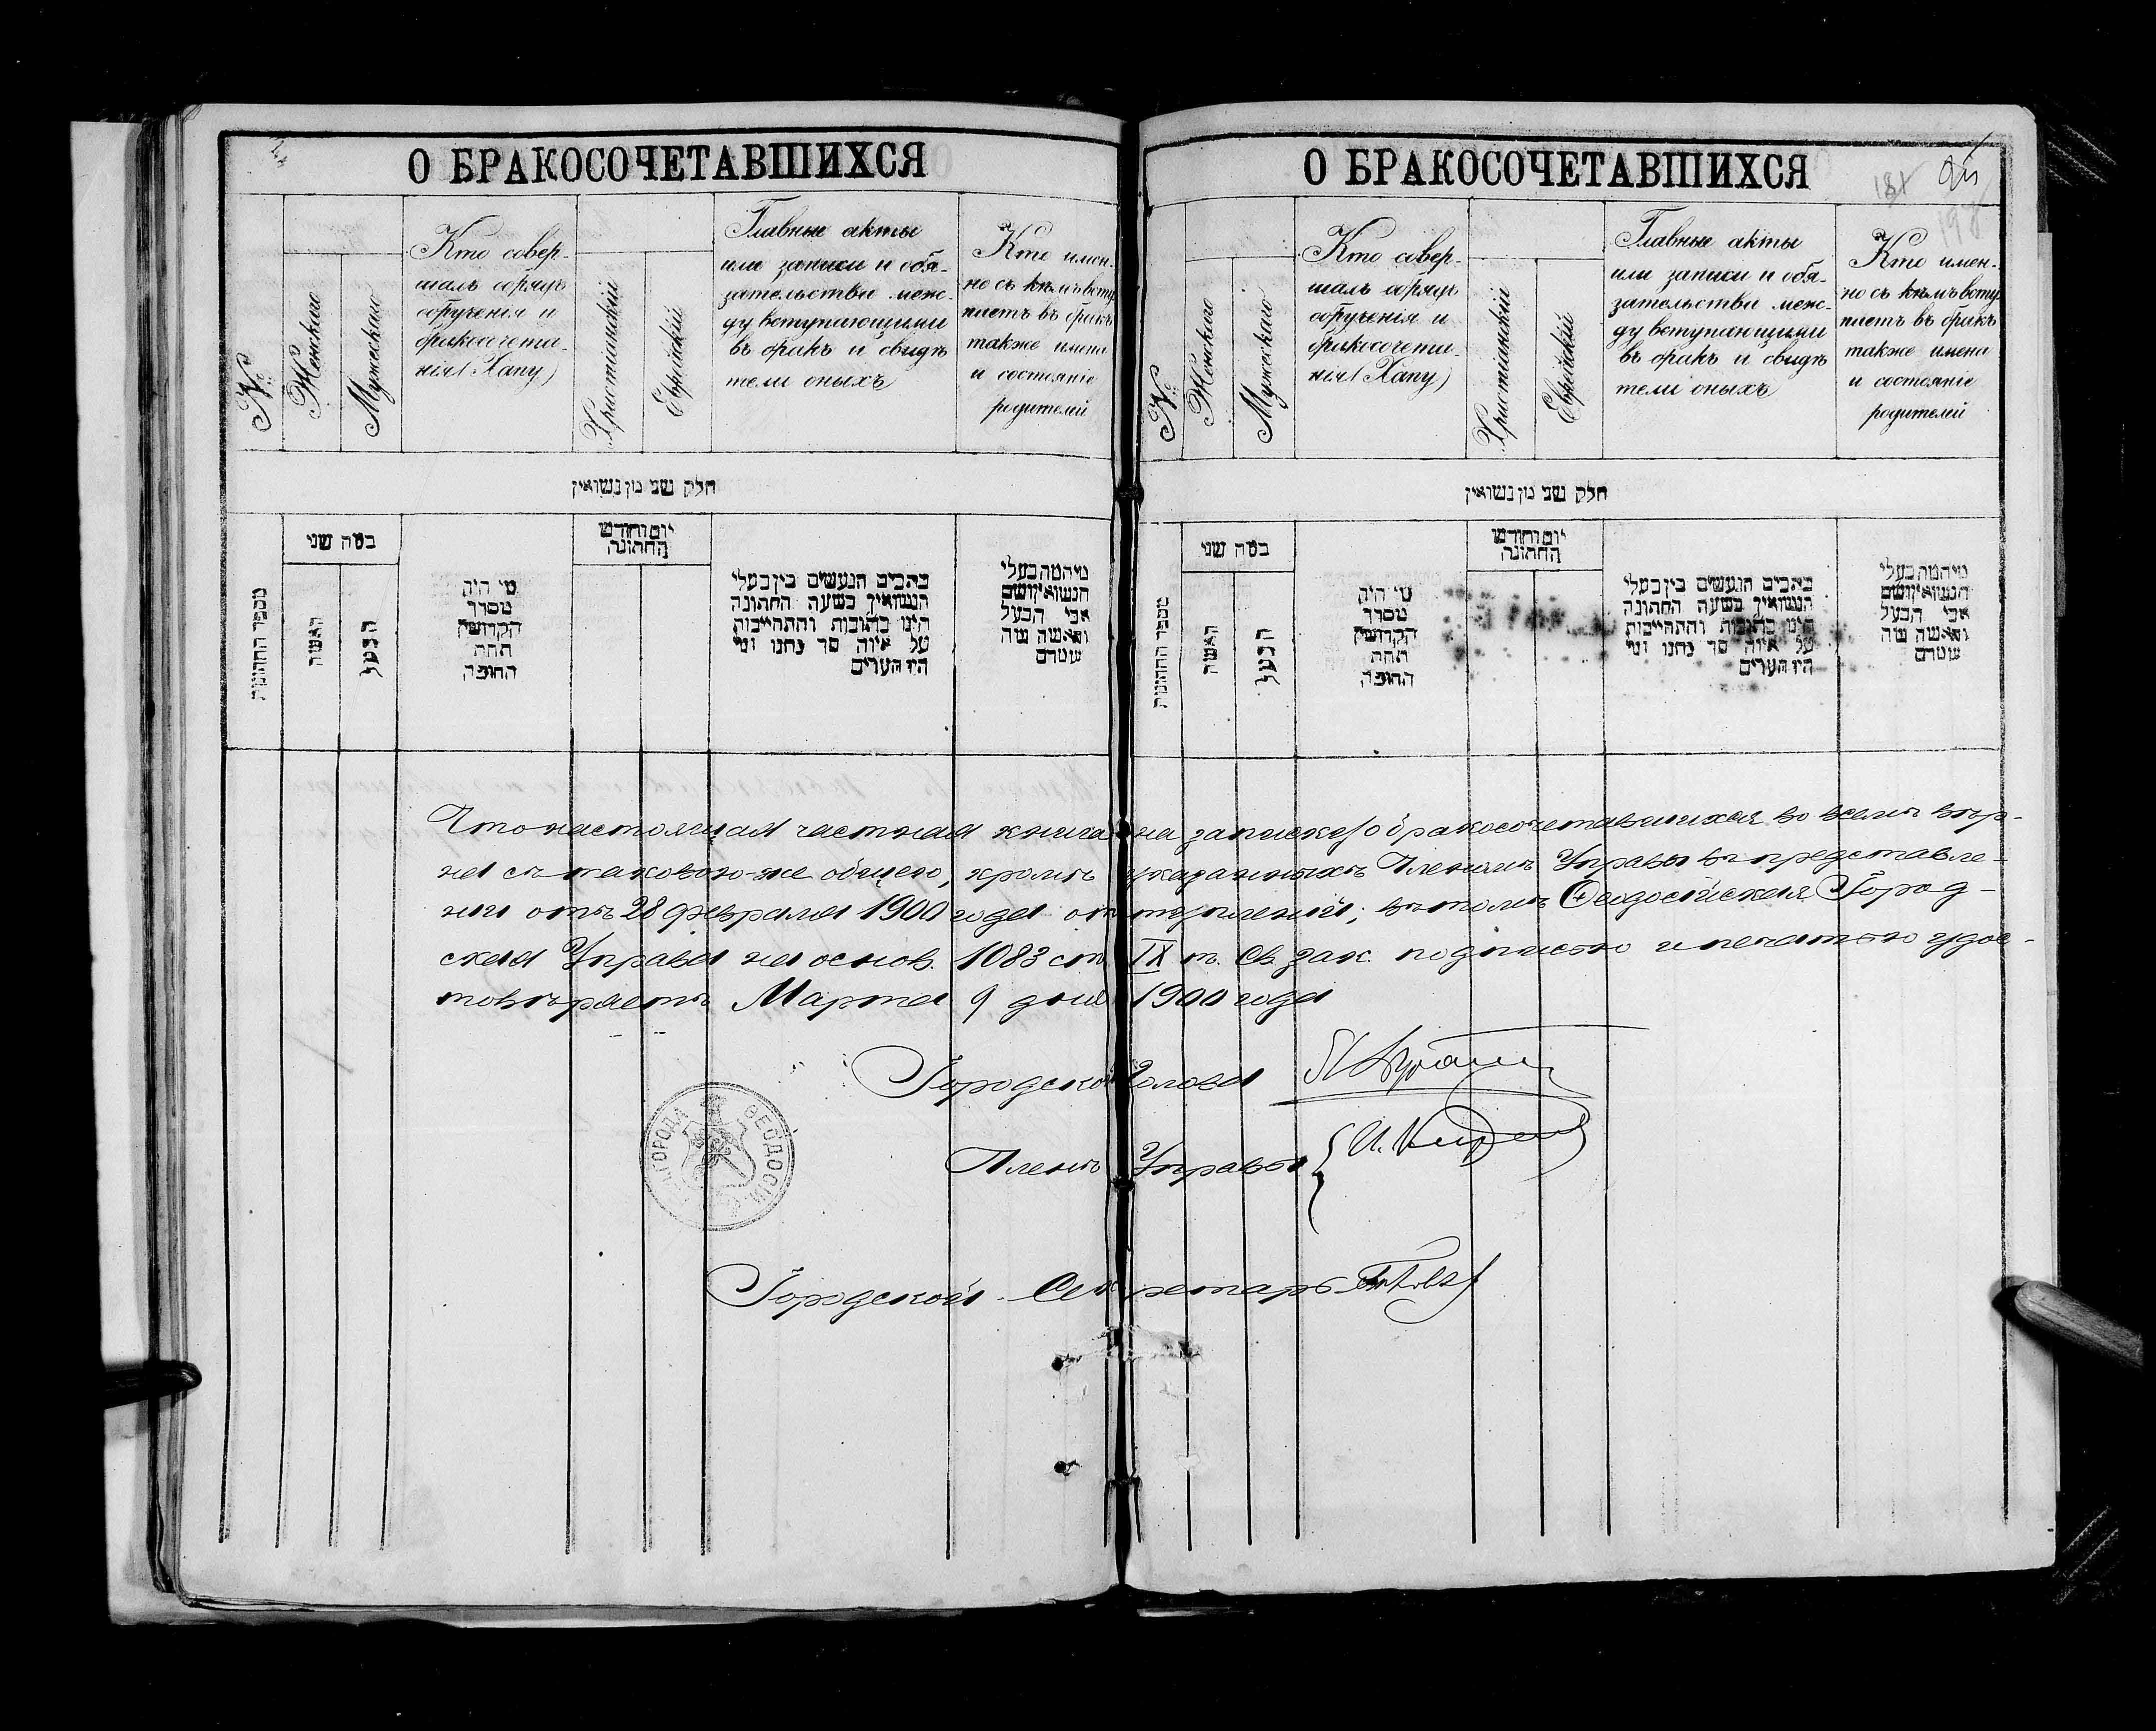 О БРАКОСОЧЕТАВШИХСЯ
№
Женскаго
Мужескаго
Кто совер-
шалъ обрядъ
обрученія и
бракосочета-
нія (Хапу)
Христіанскій
Еврейскій
Главные акты
или записи и обя-
зательства меж-
ду вступающими
въ бракъ и свидѣ
тели оныхъ
Кто имен-
но съ кѣмъ всту
паетъ въ бракъ
также имена
и состояніе
родителей
חלק שני מן נשואין
מספר החתונות
כמה שני
האשה
הבעל
מי היה
מסדר
הקדושין
תחת
החופה
יום וחודש
החתונה
כתבים הנעשים בין בעלי
הנשואין בשעה החתונה
היינו כתובות והתחייבות
על איזה סך נתנו ומי
היו העדים
מי המה בעלי
הנשואין ושם
אבי הבעל
והאשה מה
שטרם
О БРАКОСОЧЕТАВШИХСЯ
181
95
198
№
Женскаго
Мужескаго
Кто совер-
шалъ обрядъ
обрученія и
бракосочета-
нія (Хапу)
Христіанскій
Еврейскій
Главные акты
или записи и обя-
зательства меж-
ду вступающими
въ бракъ и свидѣ
тели оныхъ
Кто имен-
но съ кѣмъ всту
паетъ въ бракъ
также имена
и состояніе
родителей
חלק שני מן נשואין
מספר החתונות
כמה שני
האשה
הבעל
מי היה
מסדר
הקדושין
תחת
החופה
יום וחודש
החתונה
כתבים הנעשים בין בעלי
הנשואין בשעה החתונה
היינו כתובות והתחייבות
על איזה סך נתנו ומי
היו העדים
מי המה בעלי
הנשואין ושם
אבי הבעל
והאשה מה
שטרם
Что настоящая частная книга на записку о бракосочетавшихся во всемъ вѣр-
на съ таковою-же общею, кромѣ указанныхъ Членомъ Управы въ представле-
нiи отъ 28 февраля 1900 года отступленiй; въ томъ Ѳеодосiйская Город-
ская Управа на основ. 1083 ст. IX т. Св. зак. подписью и печатью удос-
товѣряетъ Марта 9 дня 1900 года
Городской Голова
Членъ Управы
ГОРОДА ѲЕОДОСІИ
Городской Секретарь